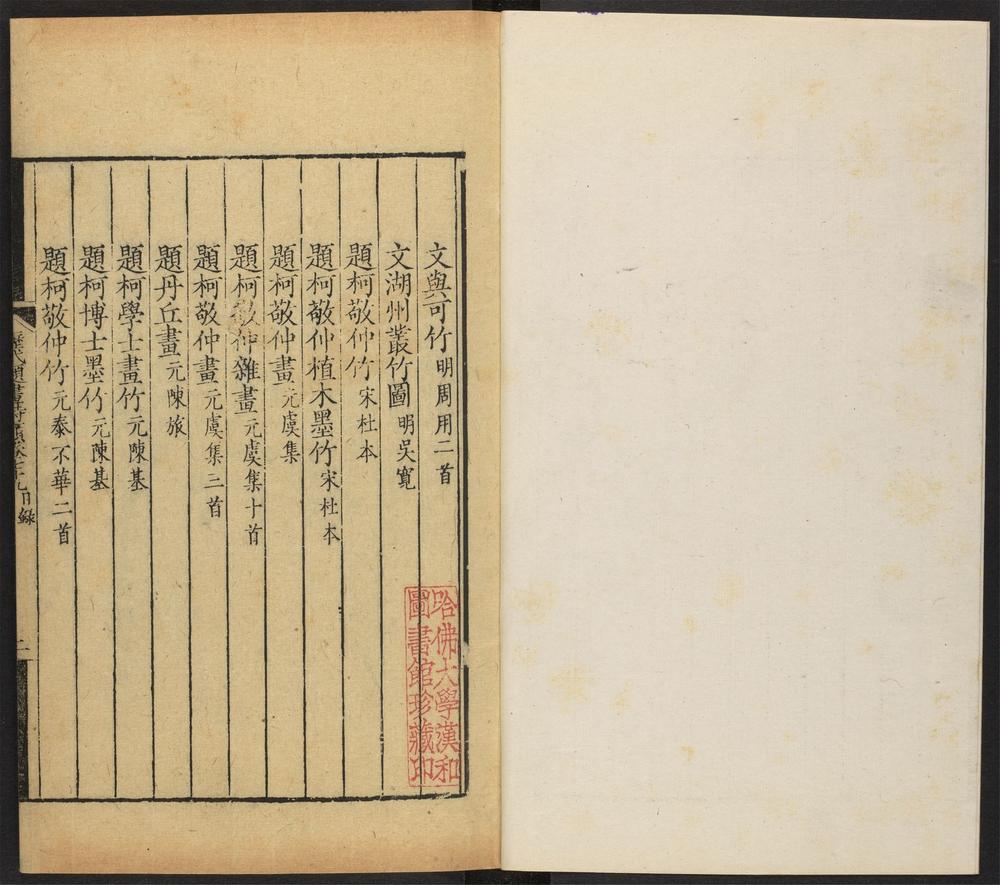 文與可竹 明周用二首
文湖州叢竹圖 明吳寬
題柯敬仲竹 宋杜本
題柯敬仲植木墨竹 宋杜本
題柯敬仲畫 元虞集
題柯敬仲雜畫 元虞集十首
題柯敬仲畫 元虞集三首
題丹丘畫 元陳旅
題柯學士畫竹 元陳基
題柯博士墨竹 元陳基
題柯敬仲竹 元泰不華二首
歷代題畫詩類卷七十九目錄
二
哈佛大學漢和
圖書館珍藏印